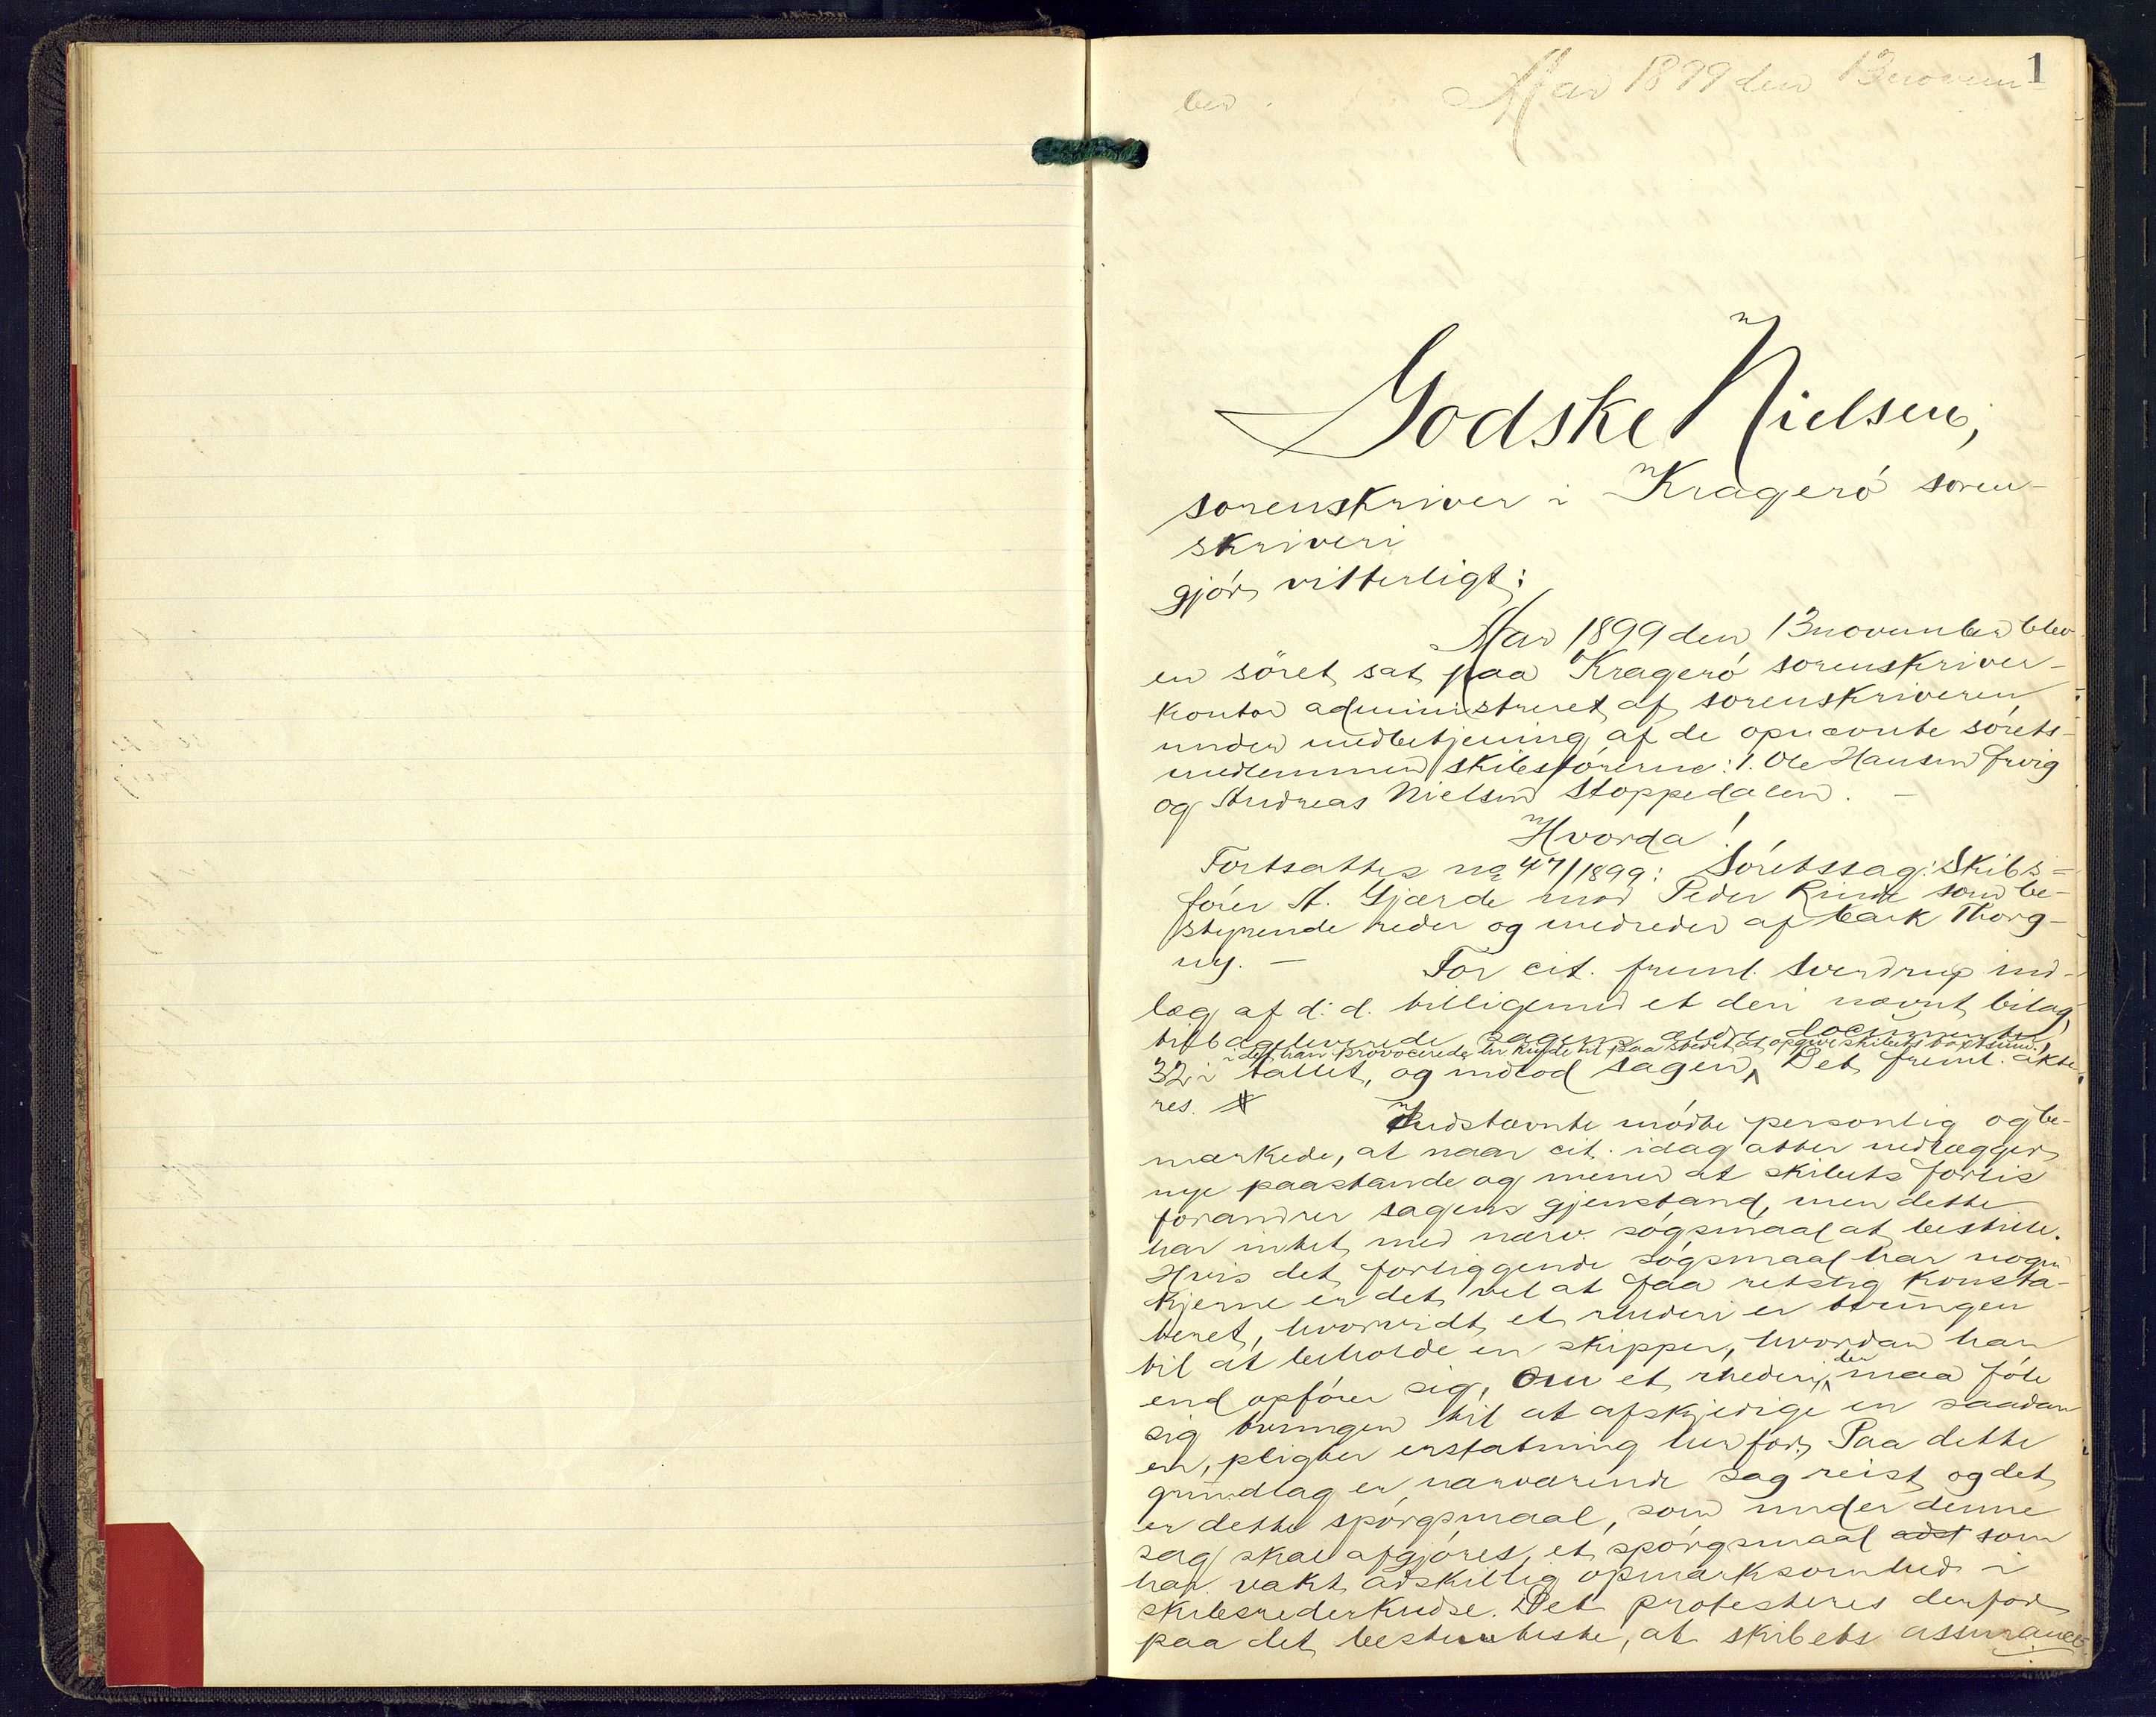 1
Aar 1899 den 13 novem-
ber.
Godske Nielsen,
sorenskriver i Kragerö soren-
skriveri
gjör vitterligt:
Aar 1899 den 13 november blev
en söret sat paa Kragerö sorenskriver-
kontor administreret af sorenskriveren
under medbetjening af de opnævnte sörets-
medlemmer skibsförerne: 1. Ole Hansen Frvig
og Andreas Nielsen Stoppedalen. -
Hvorda!
Fortsattes no 47/1899: Söretssag: Skibs-
förer A. Gjærde mod Peder Rinde som be-
styrende reder og medreder af bark Thorg-
ny. - For cit. freml. Sverdrup ind-
læg af d. d. tilligemed et deri nævnt bilag,
tilbageleverede sagens ældre documenter
i det han provocerede
32 i tallet, og indlod sagen, Det freml. akte-
res.
Indstævnte mödte personlig og be-
mærkede, at naar cit. idag atter nedlægger
nye paastande og mener at skibets forlis
forandrer sagens gjenstand, men dette
har intet med nærv. sögsmaal at bestille.
Hvis det forliggende sögsmaal har nogen
kjerne er det vel at faa retslig konsta-
teret, hvorvidt et rhederi er tvungen
til at beholde en skipper, hvordan han
end opförer sig, Om et rhederi, der maa föle
sig tvungen til at afskjedige en saadan
en, pligter erstatning herfor. Paa dette
grundlag er nærværende sag reist og det
er dette spörgsmaal, som under denne
sag skal afgjöres, et spörgsmaal adst som
har vakt adskillig opmærksomhed i
skibsrederkredse. Det protesteres derfor
paa det bestemteste, at skibets assurance-